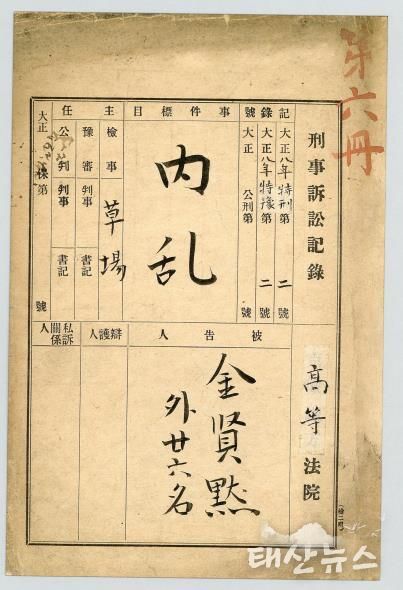 第六冊
刑事訴訟記錄
高等法院
記 大正八年特刑第 二號
錄 大正八年特豫第 二號
號 大正 公刑第 號
事件標目
內乱
主任
檢事 草場
豫審判事 書記
公判判事 書記
大正 保第 號
被告人
金賢黙
外廿六名
辯護人
私訴關係人
태산뉴스